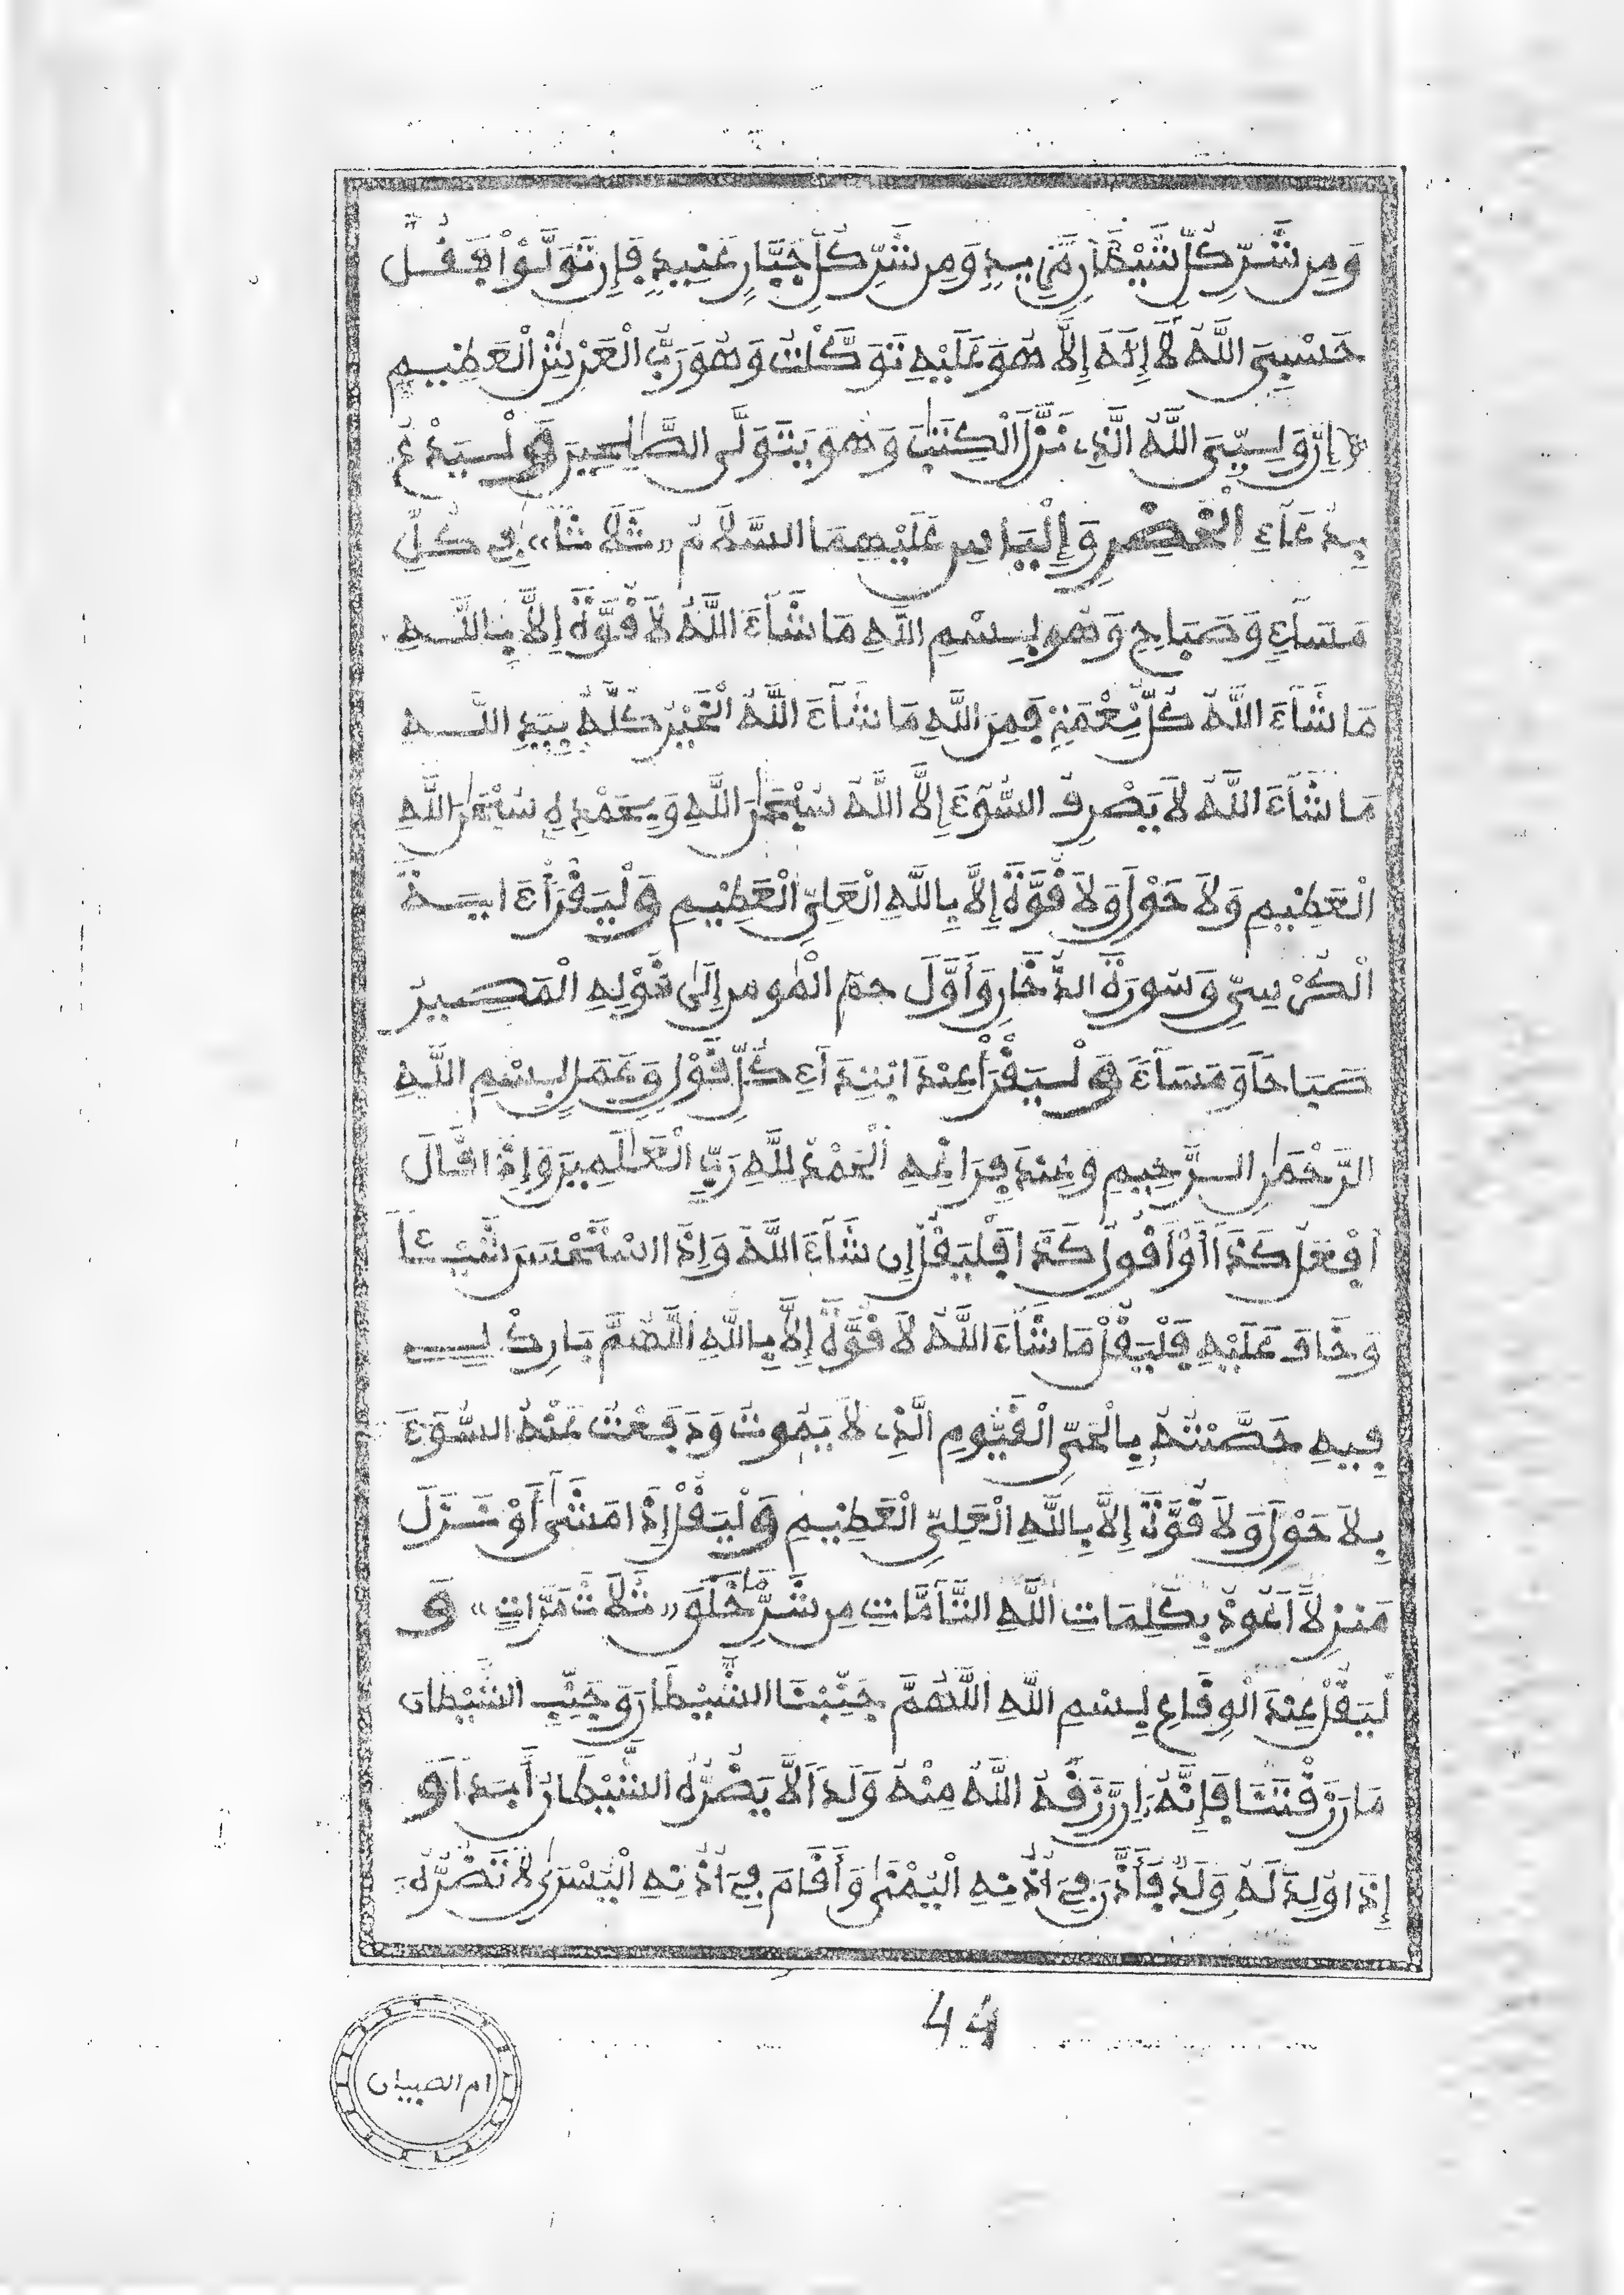 وَمِن شَرِّ كُلِّ شَيْطَانٍ مَّرِيدٍ وَمِن شَرِّ كُلِّ جَبَّارٍ عَنِيدٍ فَإِن تَوَلَّوْا فَقُلْ
حَسْبِيَ اللَّهُ لَا إِلَٰهَ إِلَّا هُوَ عَلَيْهِ تَوَكَّلْتُ وَهُوَ رَبُّ الْعَرْشِ الْعَظِيمِ
إِنَّ وَلِيِّيَ اللَّهُ الَّذِي نَزَّلَ الْكِتَٰبَ وَهُوَ يَتَوَلَّى الصَّٰلِحِينَ وَلْيَدْعُ
بِدُعَآءِ الْخَضِرِ وَإِلْيَاسِ عَلَيْهِمَا السَّلَامُ «ثَلَاثًا» فِي كُلِّ
مَسَآءٍ وَصَبَاحٍ وَهُوَ بِسْمِ اللَّهِ مَا شَآءَ اللَّهُ لَا قُوَّةَ إِلَّا بِاللَّهِ
مَا شَآءَ اللَّهُ كُلُّ نِعْمَةٍ فَمِنَ اللَّهِ مَا شَآءَ اللَّهُ الْخَيْرُ كُلُّهُ بِيَدِ اللَّهِ
مَا شَآءَ اللَّهُ لَا يَصْرِفُ السُّوٓءَ إِلَّا اللَّهُ سُبْحَٰنَ اللَّهِ وَبِحَمْدِهِ سُبْحَٰنَ اللَّهِ
الْعَظِيمِ وَلَا حَوْلَ وَلَا قُوَّةَ إِلَّا بِاللَّهِ الْعَلِيِّ الْعَظِيمِ وَلْيَقْرَأْ ءَايَةَ
الْكُرْسِيِّ وَسُورَةَ الدُّخَانِ وَأَوَّلَ حمٓ الْمُومِن إِلَىٰ قَوْلِهِ الْمَصِيرُ
صَبَاحًا وَمَسَآءً وَلْيَقْرَأْ عِنْدَ ابْتِدَآءِ كُلِّ قَوْلٍ وَعَمَلٍ بِسْمِ اللَّهِ
الرَّحْمَٰنِ الرَّحِيمِ وَعِنْدَ فِرَاغِهِ الْحَمْدُ لِلَّهِ رَبِّ الْعَٰلَمِينَ وَإِذَا قَالَ
أَفْعَلُ كَذَا أَوْ أَقُولُ كَذَا فَلْيَقُلْ إِن شَآءَ اللَّهُ وَإِذَا اسْتَحْسَنَ شَيْئًا
وَخَافَ عَلَيْهِ فَلْيَقُلْ مَا شَآءَ اللَّهُ لَا قُوَّةَ إِلَّا بِاللَّهِ اللَّهُمَّ بَارِكْ لِي
فِيهِ حَصَّنْتُهُ بِالْحَيِّ الْقَيُّومِ الَّذِي لَا يَمُوتُ وَدَفَعْتُ عَنْهُ السُّوٓءَ
بِلَا حَوْلَ وَلَا قُوَّةَ إِلَّا بِاللَّهِ الْعَلِيِّ الْعَظِيمِ وَلْيَقُلْ إِذَا مَشَىٰ أَوْ نَزَلَ
مَنزِلًا أَعُوذُ بِكَلِمَاتِ اللَّهِ التَّآمَّاتِ مِن شَرِّ مَا خَلَقَ «ثَلَاثَ مَرَّاتٍ» وَ
لْيَقُلْ عِنْدَ الْوِقَاعِ بِسْمِ اللَّهِ اللَّهُمَّ جَنِّبْنَا الشَّيْطَانَ وَجَنِّبِ الشَّيْطَانَ
مَا رَزَقْتَنَا فَإِنَّهُ إِن رَّزَقَهُ اللَّهُ مِنْهُ وَلَدًا لَّا يَضُرُّهُ الشَّيْطَانُ أَبَدًا وَ
إِذَا وُلِدَ لَهُ وَلَدٌ فَأَذَّنَ فِي أُذُنِهِ الْيُمْنَىٰ وَأَقَامَ فِي أُذُنِهِ الْيُسْرَىٰ لَا تَضُرُّهُ
44
ام الصبيان